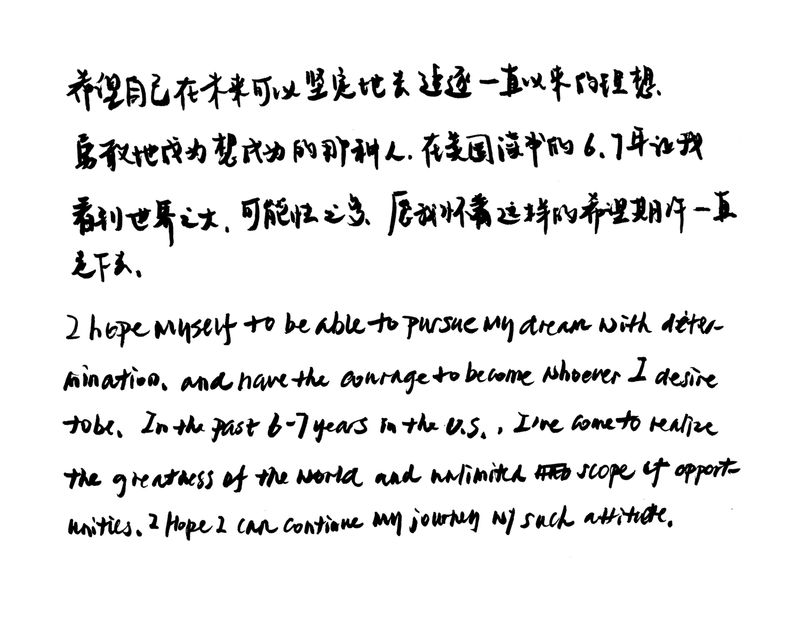 希望自己在未来可以坚定地去追逐一直以来的理想、
勇敢地成为想成为的那种人. 在美国读书的6.7年让我
看到世界之大, 可能性之多, 愿我怀着这样的希望期许一直
走下去.
I hope myself to be able to pursue my dream with deter-
mination, and have the courage to become whoever I desire
to be. In the past 6-7 years in the U.S., I've come to realize
the greatness of the world and unlimited scope of opport-
unities. I Hope I can continue my journey w/ such attitude.